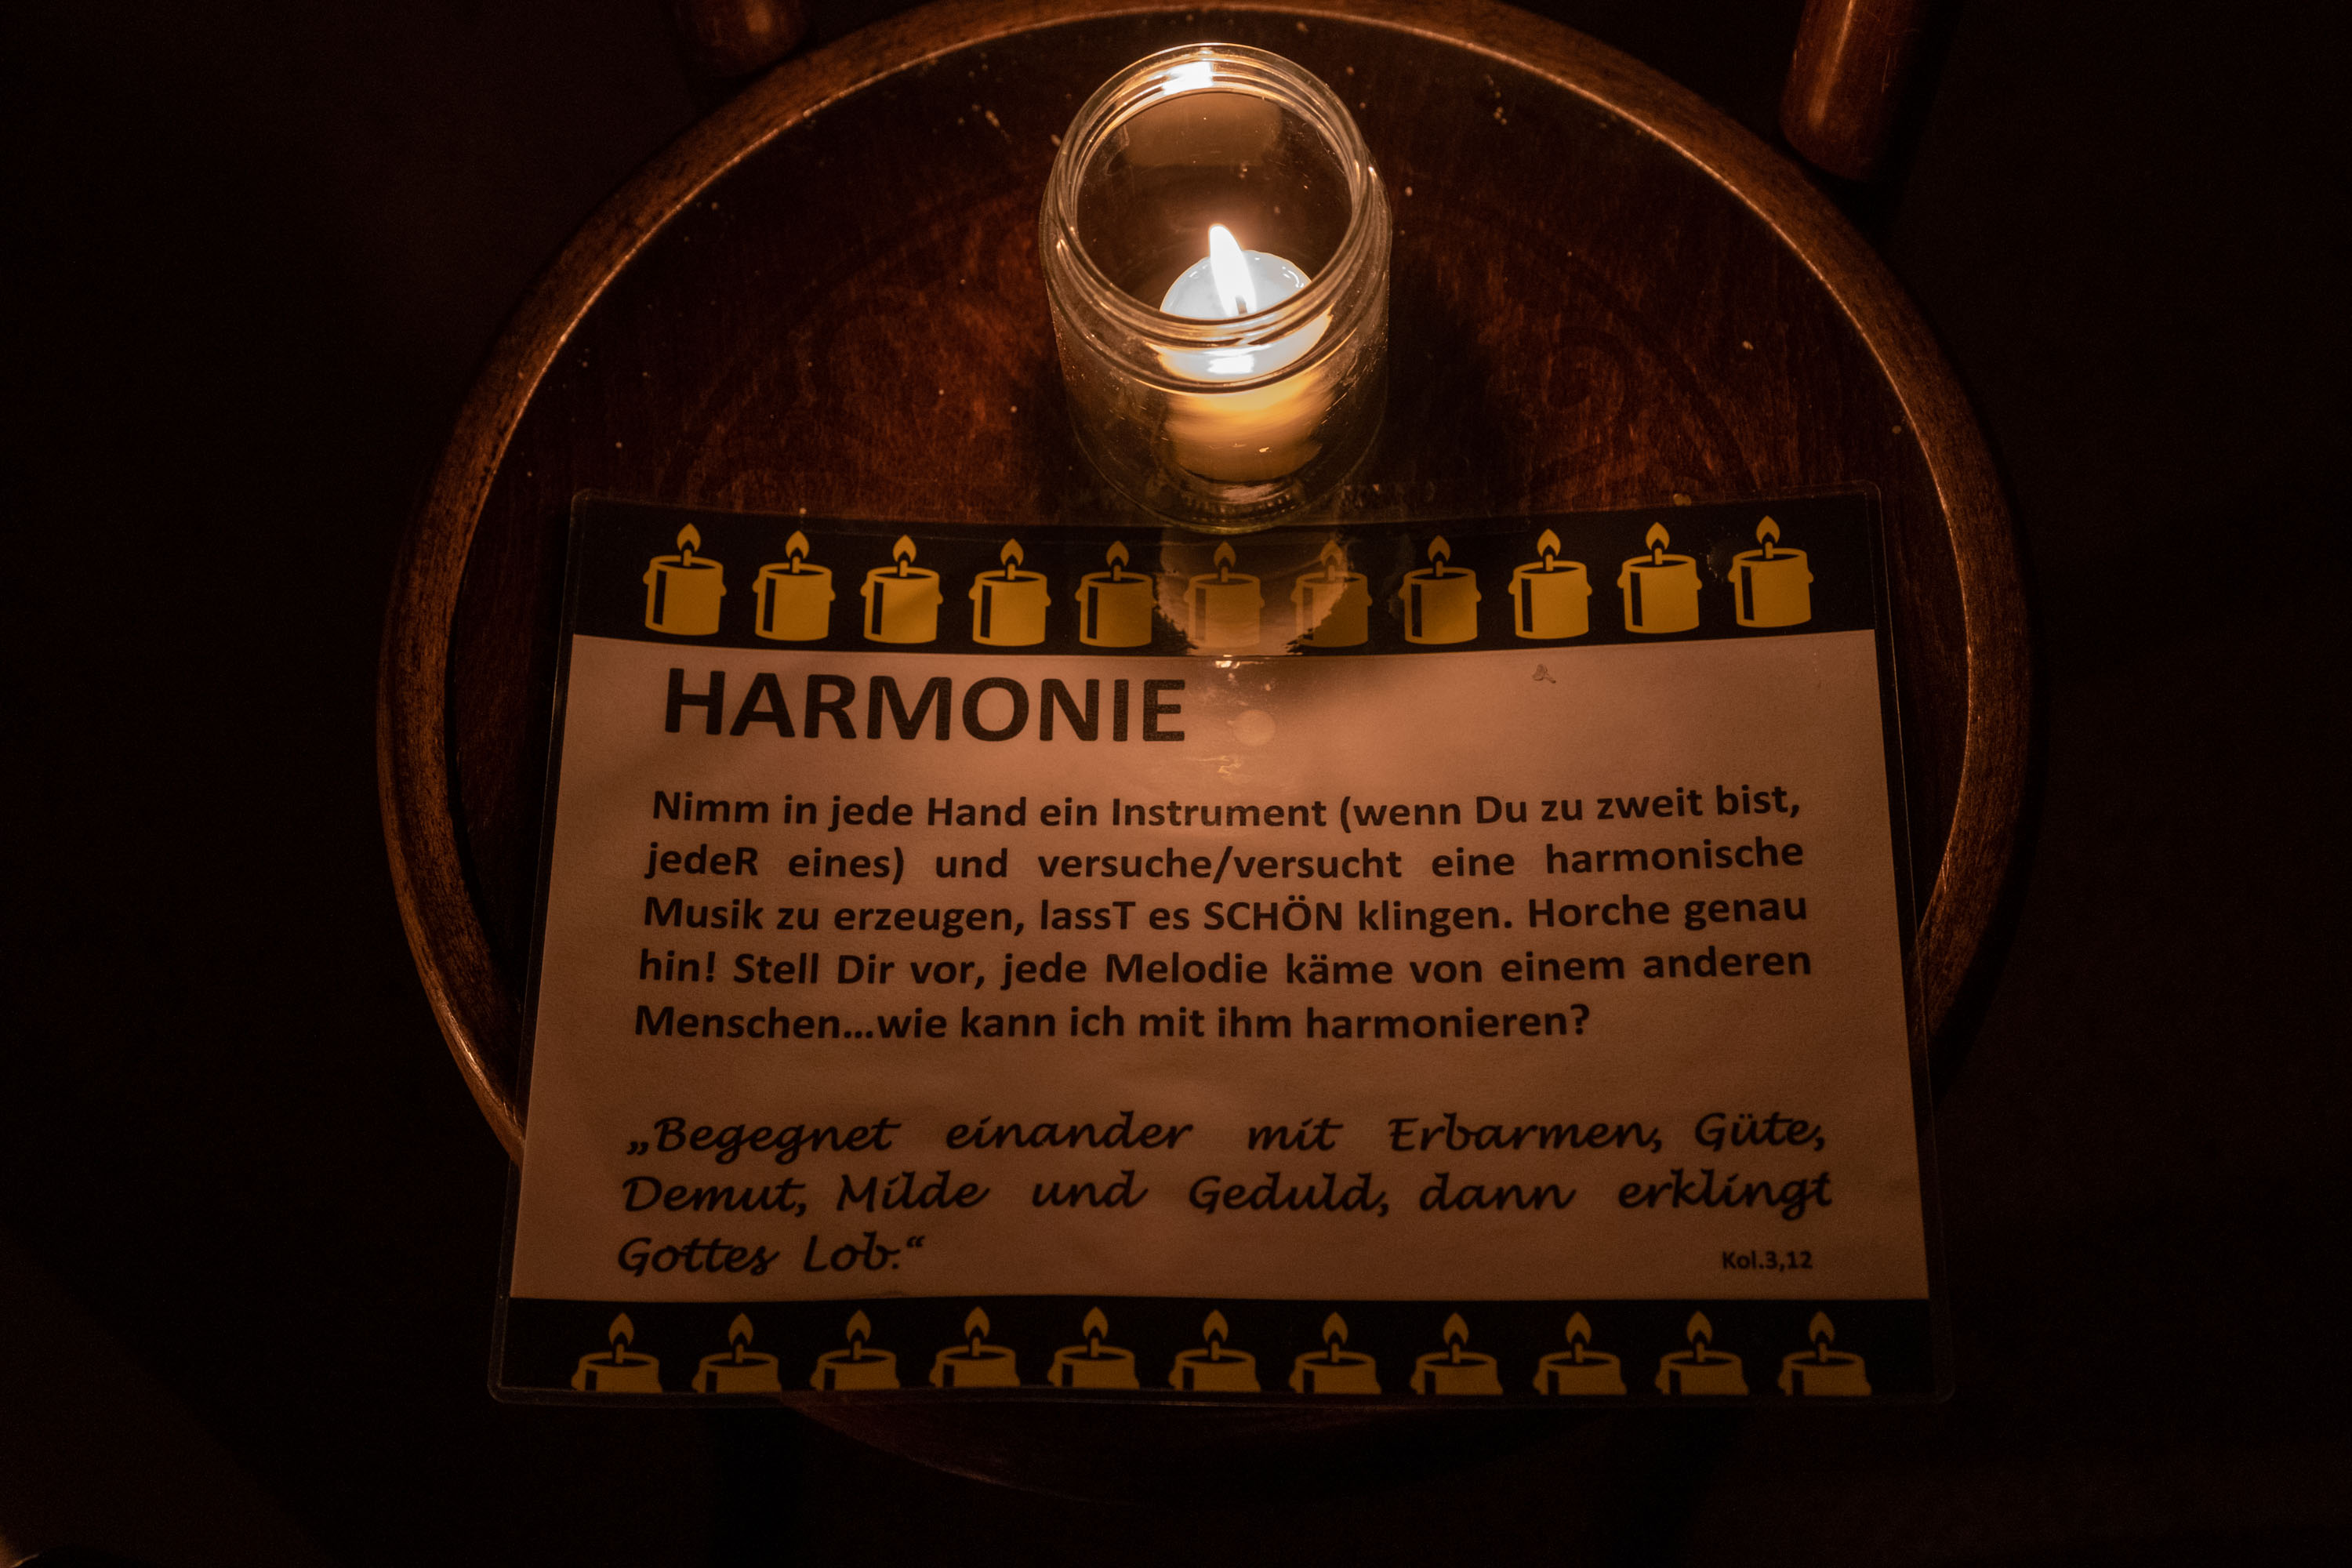 HARMONIE
Nimm in jede Hand ein Instrument (wenn Du zu zweit bist,
jedeR eines) und versuche/versucht eine harmonische
Musik zu erzeugen, lassT es SCHÖN klingen. Horche genau
hin! Stell Dir vor, jede Melodie käme von einem anderen
Menschen...wie kann ich mit ihm harmonieren?
„Begegnet einander mit Erbarmen, Güte,
Demut, Milde und Geduld, dann erklingt
Gottes Lob.“
Kol.3,12